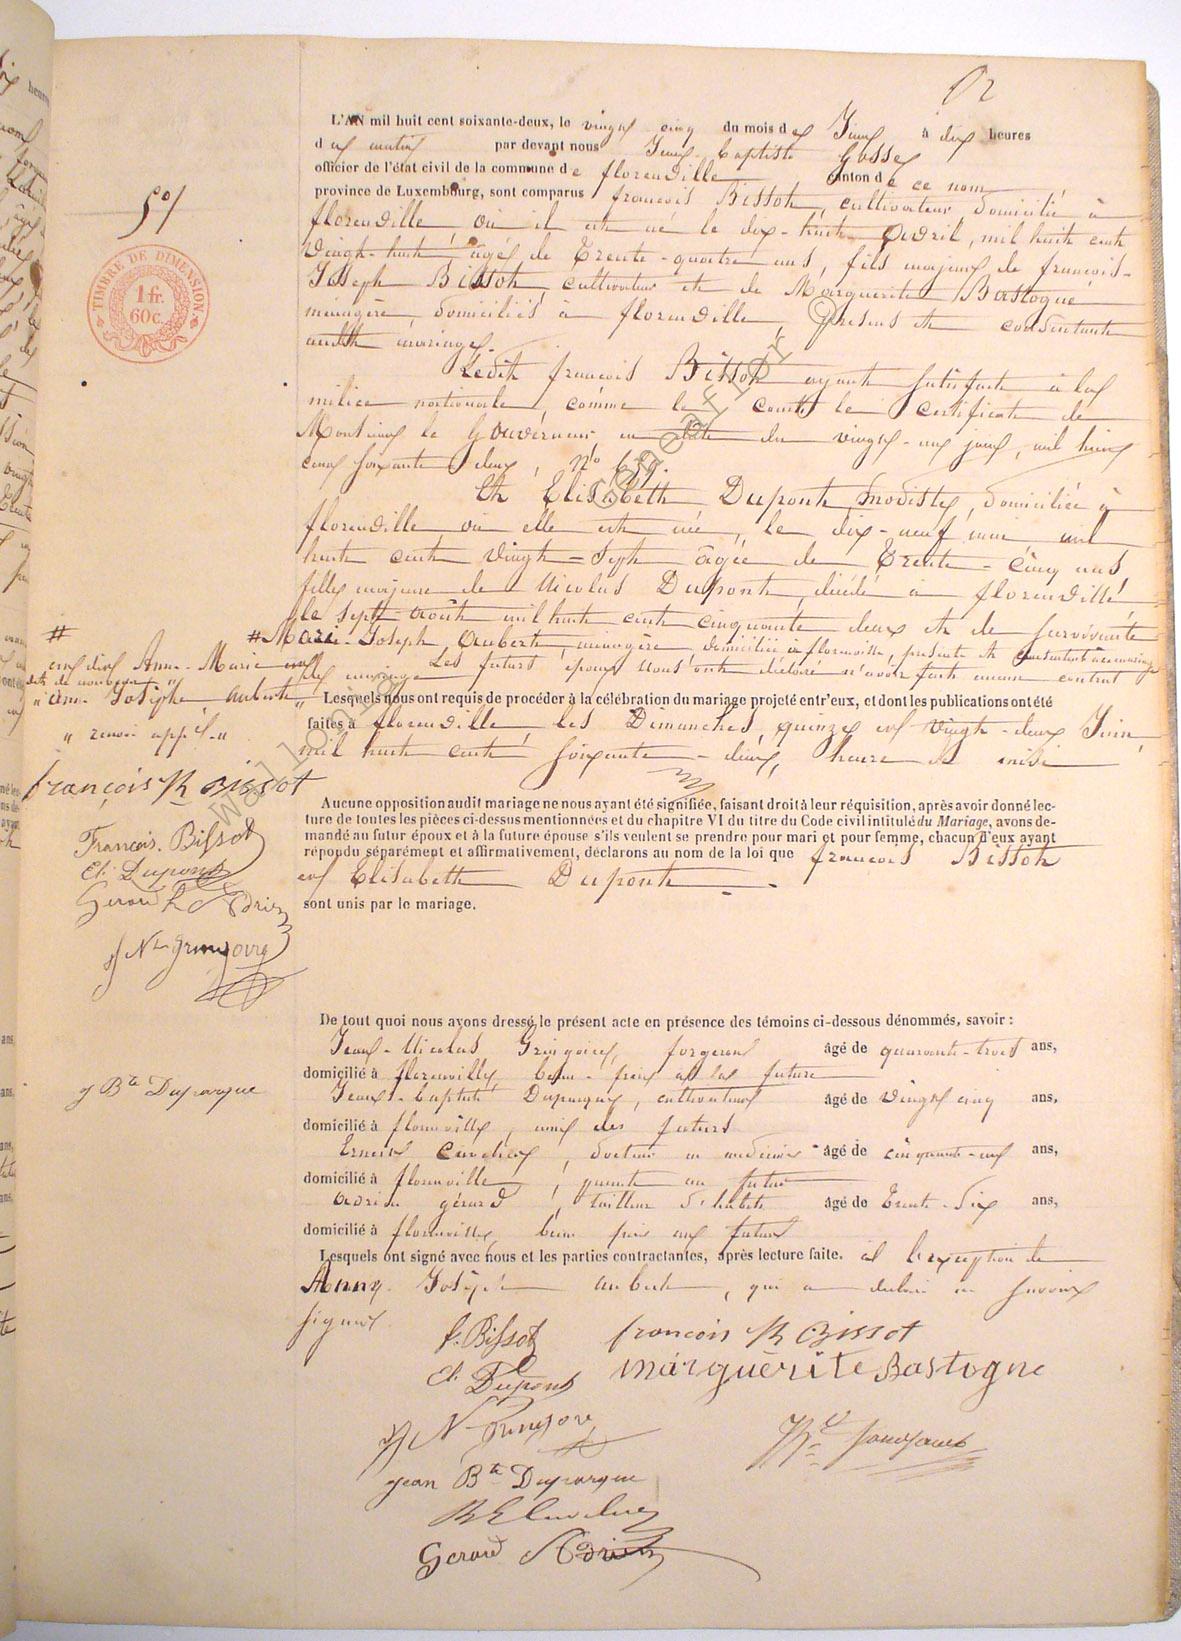 L'AN mil huit cent soixante-deux, le vingt cinq du mois de Juin à dix heures
du matin par devant nous Jean Baptiste
officier de l'état civil de la commune de florenville canton de ce nom
province de Luxembourg, sont comparus françois Bissot, cultivateur, domicilié à
florenville, où il est né le dix-huit avril, mil huit cent
vingt-huit, âgé de trente-quatre ans, fils majeur de françois-
Joseph Bissot cultivateur et de Marguerite Bastogne
ménagère, domiciliés à florenville, présens et consentants
audit mariage.
Ledit françois Bissot ayant satisfait à la
milice nationale, comme le constate le certificat de
Monsieur le Gouverneur, en date du vingt-un juin, mil huit
cent soixante deux, n° 659.
Et Elisabeth Dupont, modiste, domiciliée à
florenville où elle est née, le dix-neuf mai mil
huit cent vingt-sept âgée de trente-cinq ans
fille majeure de Nicolas Dupont, décédé à florenville
le sept août mil huit cent cinquante deux et de survivante
# Marie-Joseph Aubert, ménagère, domiciliée à florenville, présente et consentante au mariage
Les futurs époux nous ont déclaré n'avoir fait aucun contrat
de mariage
Lesquels nous ont requis de procéder à la célébration du mariage projeté entr'eux, et dont les publications ont été
faites à florenville, les Dimanches, quinze et vingt-deux Juin,
mil huit cent soixante-deux, heure de midi
Aucune opposition audit mariage ne nous ayant été signifiée, faisant droit à leur réquisition, après avoir donné lec-
ture de toutes les pièces ci-dessus mentionnées et du chapitre VI du titre du Code civil intitulé du Mariage, avons de-
mandé au futur époux et à la future épouse s'ils veulent se prendre pour mari et pour femme, chacun d'eux ayant
répondu séparément et affirmativement, déclarons au nom de la loi que françois Bissot
et Elisabeth Dupont
sont unis par le mariage.
De tout quoi nous avons dressé le présent acte en présence des témoins ci-dessous dénommés, savoir :
Jean-Nicolas Gringoire, forgeron âgé de quarante-trois ans,
domicilié à florenville, beau-frère de la future
Jean-Baptiste Duparque, cultivateur âgé de vingt cinq ans,
domicilié à florenville, ami des futurs
Ernest, docteur en médecine âgé de cinquante-un ans,
domicilié à florenville, parent au futur
Adrien gérard, tailleur d'habits âgé de trente-six ans,
domicilié à florenville, beau frère au futur
Lesquels ont signé avec nous et les parties contractantes, après lecture faite. à l'exception de
Anne Joseph aubert, qui a déclaré ne savoir
signer
f. Bissot
françois Bissot
El. Dupont
marguérite Bastogne
N. Gringoire
jean Bte Duparque
Gerard Adrien
50/
TIMBRE DE DIMENSION.
1 fr.
60c.
#
Anne-Marie
anne Josephe aubert
" renvoi app. "
françois Bissot
François Bissot
El. Dupont
Gerard Adrien
N. Gringoire
j Bte Duparque
© Geneaf for
Wallonia